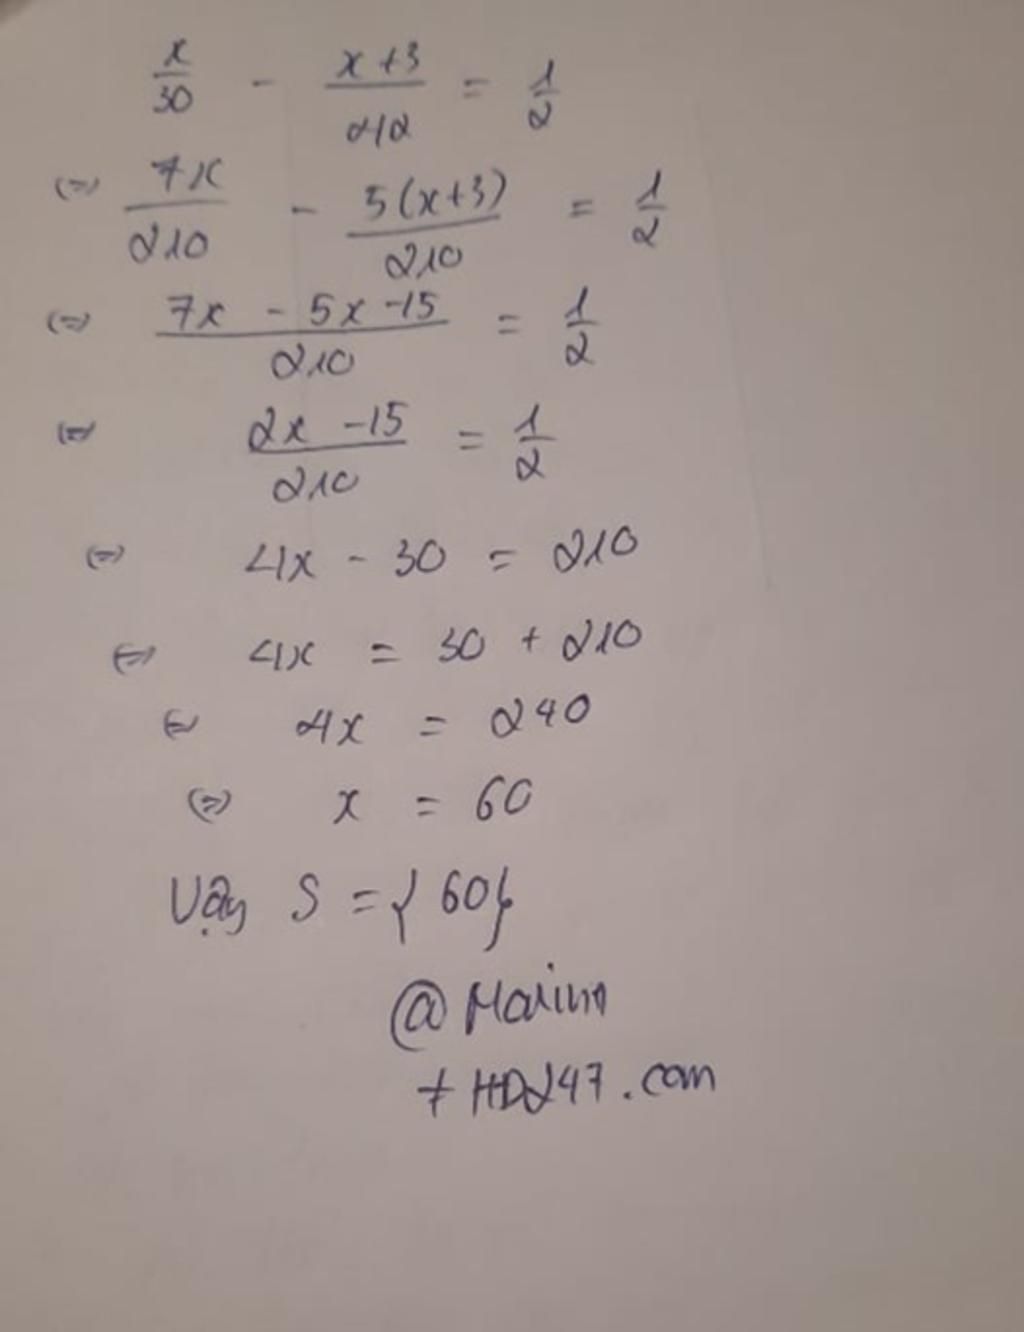 x/30 - (x+3)/42 = 1/2
(=) 7x/210 - 5(x+3)/210 = 1/2
(=) (7x - 5x - 15)/210 = 1/2
(=) (2x - 15)/210 = 1/2
(=) 4x - 30 = 210
(=) 4x = 30 + 210
(=) 4x = 240
(=) x = 60
Vậy S = {60}
@
≠ HD247.com